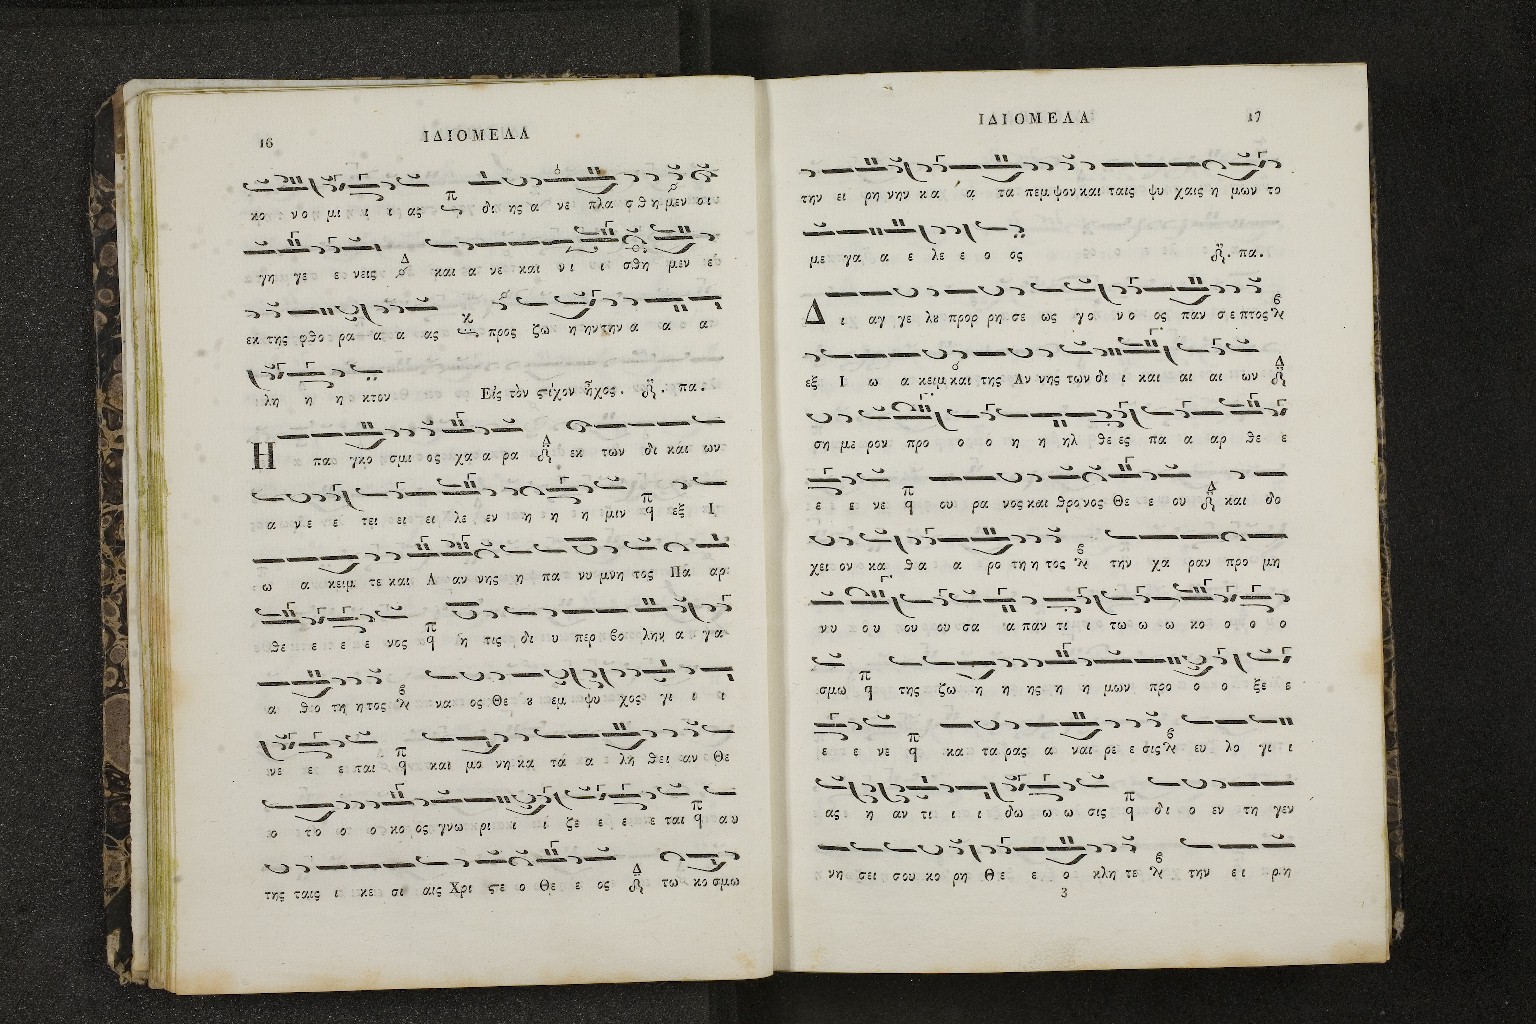 16
ΙΔΙΟΜΕΛΑ
κοι νο μι ι ι ας π δι ης α νε πλα σθημεν οι
γη γε ε νεις Δ και α νε και νι ι σθη μεν εκ
εκ της φθο ρα α α ας κ προς ζω η ηντην α α α
λη η η κτον Εἰς τὸν στίχον ἦχος. πα.
Η πα γκο σμι ος χα α ρα Δ εκ των δι και ων
α νε ε τει ει ει λε εν η η η μιν π q εξ Ι
ω α κειμ τε και Α αν νης η πα νυ μνη τος Πα αρ
θε ε ε ε ε νος π q η τις δι υ περ βο λην α γα
α θο τη ητος β να ος Θε ȣ εμ ψυ χος γι ι ι
νε ε ε ται π q και μο νη κα τα α λη θει αν Θε
ο το ο ο κο ος γνω ρι ι ι ζε ε ε ε ται π q αυ
της ταις ι κε σι αις Χρι στε ο Θε ε ος Δ τω κοσμω
ΙΔΙΟΜΕΛΑ
17
την ει ρη νην κα α τα πεμψον και ταις ψυ χαις η μων το
με γα α ε λε ε ο ος πα.
Δ ι αγ γε λȣ προρ ρη σε ως γο νο ος παν σεπτος β
εξ Ι ω α κειμ και της Αν νης των δι ι και αι αι ων Δ
ση με ρον προ ο ο η η ηλ θε ες πα α αρ θε ε
ε ε νε π q ου ρα νος και θρονος Θε ε ου Δ και δο
χει ον κα θα α ρο τη η τος β την χα ραν προ μη
νυ ου ου ου σα α παν τι ι τω ω ω κο ο ο ο
σμω π q της ζω η η ης η η μων προ ο ο ξε ε
ε ε νε π q κα τα ρας α ναι ρε ε σις β ευ λο γι ι
ας η αν τι ι ι δω ω ω σις π q δι ο εν τη γεν
νη σει σου κο ρη Θε ε ο κλη τε β την ει ρη
3